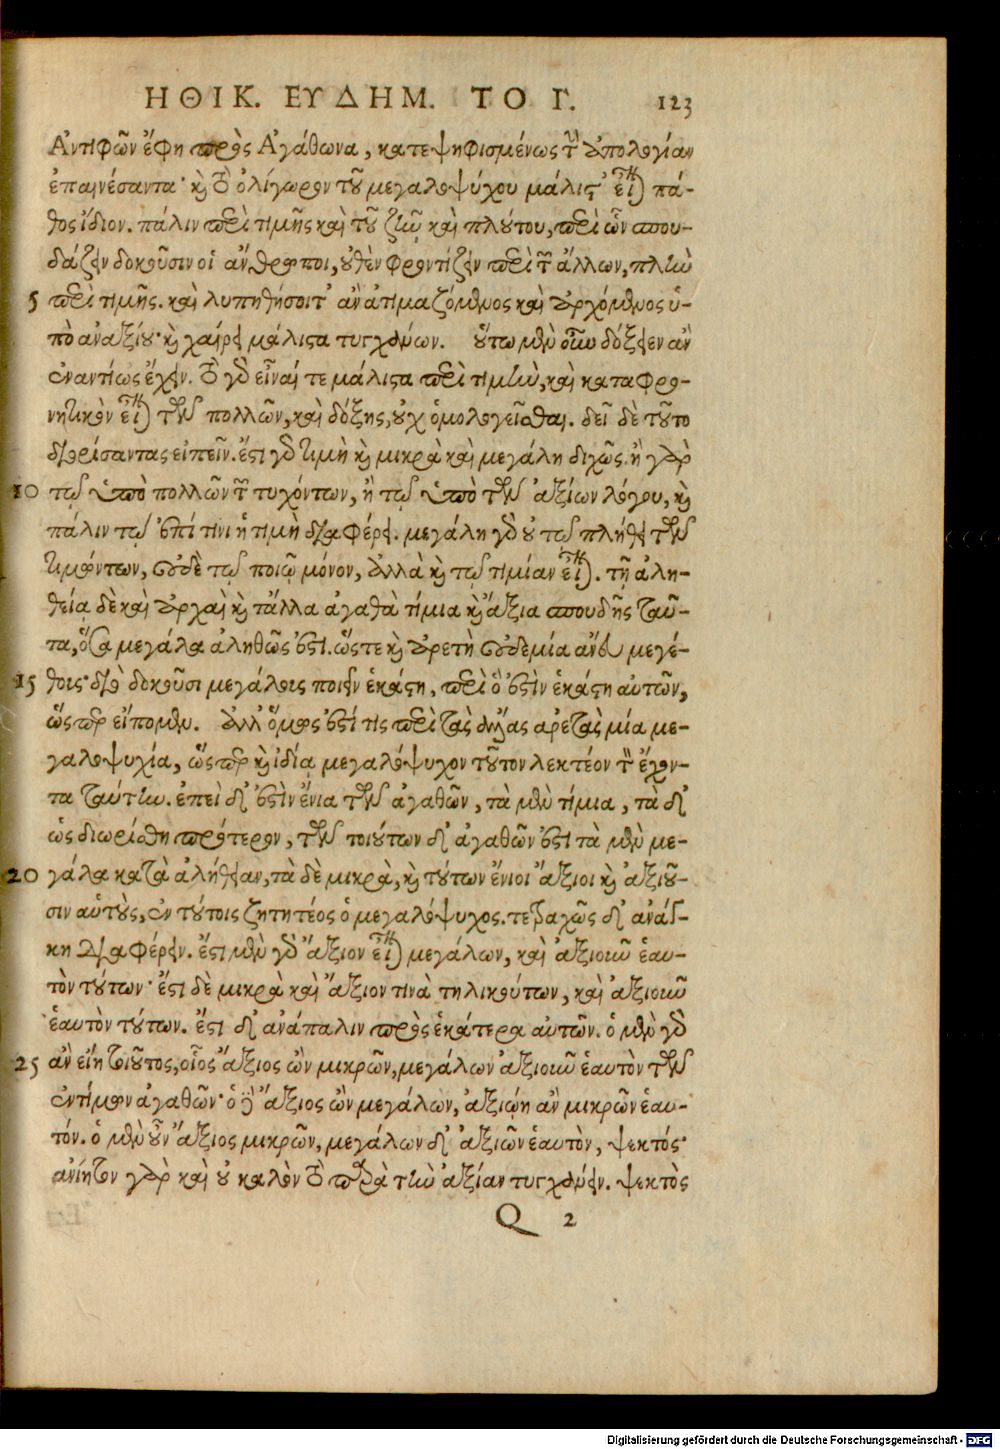 ΗΘΙΚ. ΕΥΔΗΜ. ΤΟ Γ. 123
Ἀντιφῶν ἔφη πρὸς Ἀγάθωνα, κατεψηφισμένως τὴν ἀπολογίαν
ἐπαινέσαντα· καὶ τὸ ὀλίγωρον τοῦ μεγαλοψύχου μάλιστ' εἶναι πά-
θος ἴδιον. πάλιν περὶ τιμῆς καὶ τοῦ ζῆν καὶ πλούτου, περὶ ὧν σπου-
δάζειν δοκοῦσιν οἱ ἄνθρωποι, οὐθὲν φροντίζειν περὶ τῶν ἄλλων, πλὴν
5 περὶ τιμῆς. καὶ λυπηθήσοιτ' ἂν ἀτιμαζόμενος καὶ ἀρχόμενος ὑ-
πὸ ἀναξίου· καὶ χαίρει μάλιστα τυγχάνων. οὕτω μὲν οὖν δόξειεν ἂν
ἐναντίως ἔχειν. τὸ γὰρ εἶναί τε μάλιστα περὶ τιμὴν, καὶ καταφρο-
νητικὸν εἶναι τῶν πολλῶν, καὶ δόξης, οὐχ ὁμολογεῖσθαι. δεῖ δὲ τοῦτο
διορίσαντας εἰπεῖν. ἔστι γὰρ τιμὴ καὶ μικρὰ καὶ μεγάλη διχῶς. ἢ γὰρ
10 τῷ ὑπὸ πολλῶν τῶν τυχόντων, ἢ τῷ ὑπὸ τῶν ἀξίων λόγου, καὶ
πάλιν τῷ ἐπί τινι ἡ τιμὴ διαφέρει. μεγάλη γὰρ οὐ τῷ πλήθει τῶν
τιμώντων, οὐδὲ τῷ ποιῷ μόνον, ἀλλὰ καὶ τῷ τιμίαν εἶναι. τῇ ἀλη-
θείᾳ δὲ καὶ ἀρχαὶ καὶ τἄλλα ἀγαθὰ τίμια καὶ ἄξια σπουδῆς ταῦ-
τα, ὅσα μεγάλα ἀληθῶς ἐστι. ὥστε καὶ ἀρετὴ οὐδεμία ἄνευ μεγέ-
15 θους· διὸ δοκοῦσι μεγάλους ποιεῖν ἑκάστη, περὶ ὅ ἐστὶν ἑκάστη αὐτῶν,
ὥσπερ εἴπομεν. ἀλλ' ὅμως ἐστί τις περὶ τὰς ἄλλας ἀρετὰς μία με-
γαλοψυχία, ὥσπερ καὶ ἰδίᾳ μεγαλόψυχον τοῦτον λεκτέον τὸν ἔχον-
τα ταύτην. ἐπεὶ δ' ἐστὶν ἔνια τῶν ἀγαθῶν, τὰ μὲν τίμια, τὰ δ'
ὡς διωρίσθη πρότερον, τῶν τοιούτων δ' ἀγαθῶν ἐστι τὰ μὲν με-
20 γάλα κατὰ ἀλήθειαν, τὰ δὲ μικρὰ, καὶ τούτων ἔνιοι ἄξιοι καὶ ἀξιοῦ-
σιν αὑτοὺς, ἐν τούτοις ζητητέος ὁ μεγαλόψυχος. τετραχῶς δ' ἀνάγ-
κη διαφέρειν. ἔστι μὲν γὰρ ἄξιον εἶναι μεγάλων, καὶ ἀξιοῦν ἑαυ-
τὸν τούτων· ἔστι δὲ μικρὰ καὶ ἄξιον τινὰ τηλικούτων, καὶ ἀξιοῦν
ἑαυτὸν τούτων. ἔστι δ' ἀνάπαλιν πρὸς ἑκάτερα αὐτῶν. ὁ μὲν γὰρ
25 ἂν εἴη τοιοῦτος, οἷος ἄξιος ὢν μικρῶν, μεγάλων ἀξιοῦν ἑαυτὸν τῶν
ἐντίμων ἀγαθῶν· ὁ δὲ ἄξιος ὢν μεγάλων, ἀξιῴη ἂν μικρῶν ἑαυ-
τόν. ὁ μὲν οὖν ἄξιος μικρῶν, μεγάλων δ' ἀξιῶν ἑαυτὸν, ψεκτός·
ἀνόητον γὰρ καὶ οὐ καλὸν τὸ παρὰ τὴν ἀξίαν τυγχάνειν. ψεκτὸς
Q 2
Digitalisierung gefördert durch die Deutsche Forschungsgemeinschaft - DFG